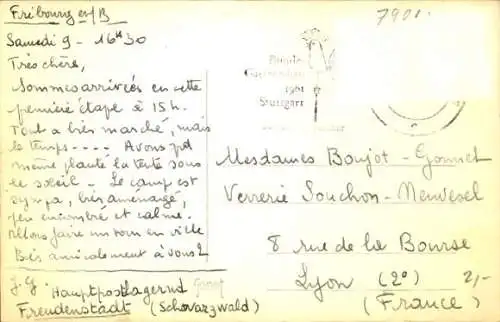 Fribourg en/B
Samedi 9 - 16H30
Très chère,
Sommes arrivées en cette
première étape à 15 h.
Tout a très marché, mais
le temps---- Avons pet
même planté la tente sous
le soleil - Le camp est
sympa, très aménagé,
peu encombré et calme.
Allons faire un tour en ville
Bien amicalement à vous 2
J.G.
Hauptpostlagernd
Freudenstadt (Schwarzwald)
7901.
1961
Stuttgart
Mesdames Boujot - Gonnet
Verrerie Souchon - Neuvesel
8 rue de la Bourse
Lyon (2°) 2/-
(France)